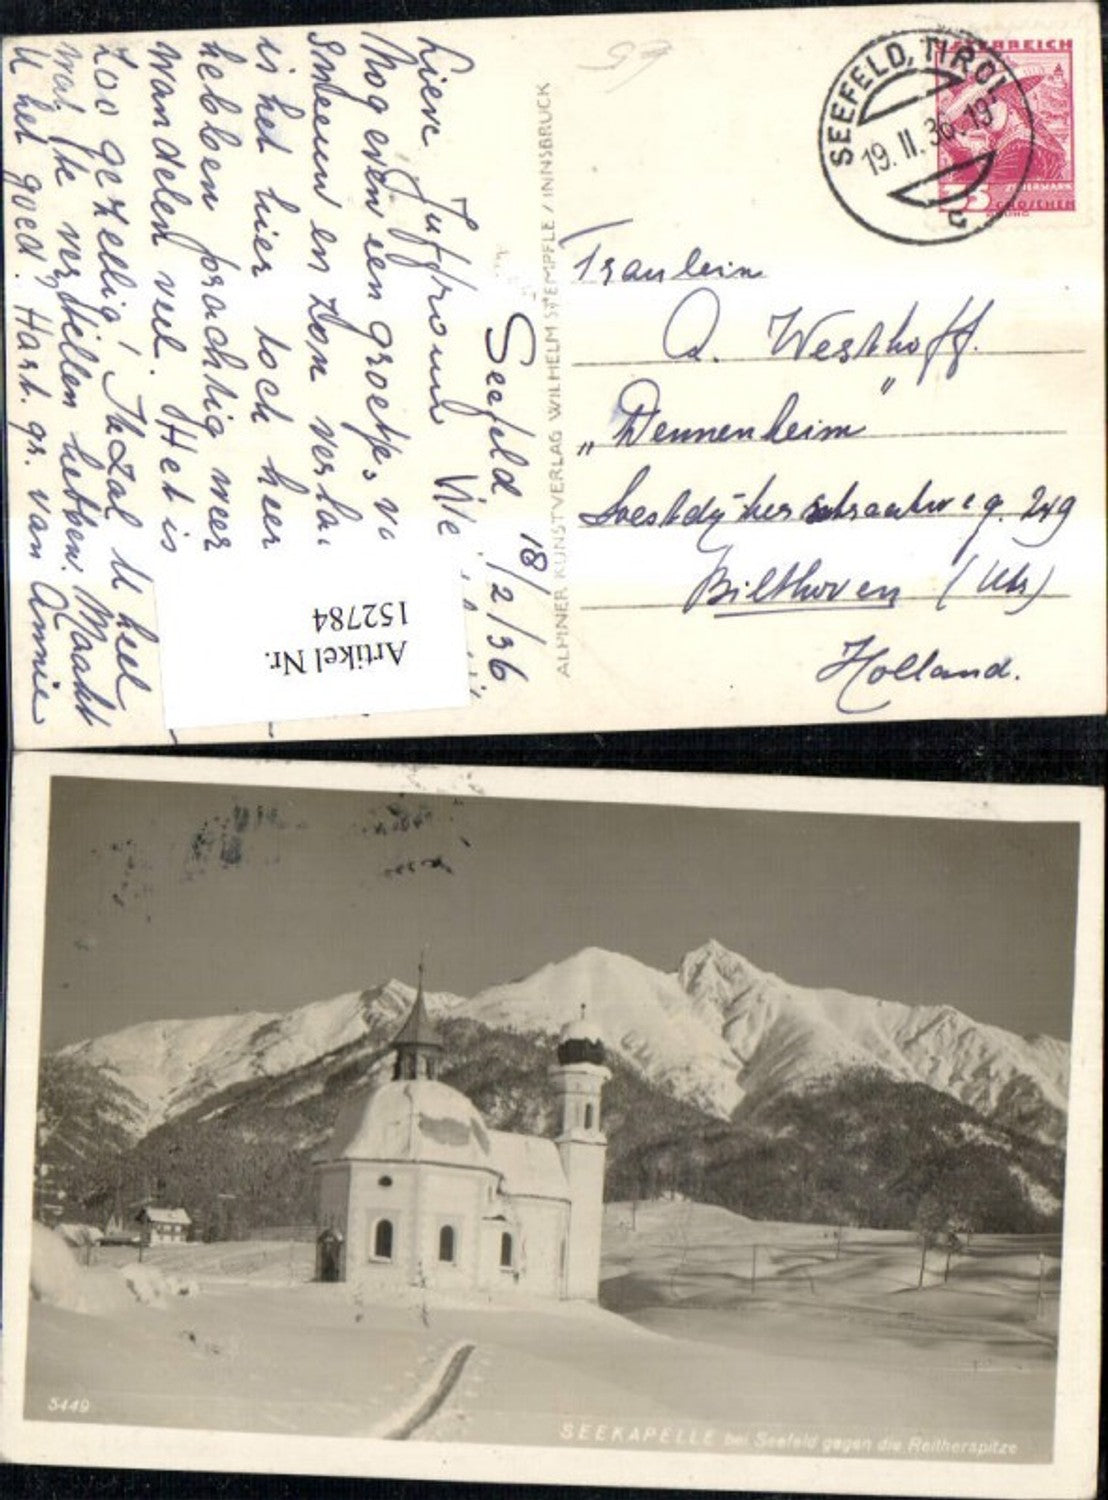 SEEFELD, TIROL
19. II. 36. 19
c
ÖSTERREICH
STEIERMARK
GROSCHEN
Fräulein
A. Westhoff.
„Dennenheim"
Soestdijkerstraatweg. 249
Bilthoven (Utr)
Holland.
ALPINER KUNSTVERLAG WILHELM STEMPFLE / INNSBRUCK
Seefeld 18/2/36
Lieve Juffrouw
Nog even een groetje,
sneeuw en zon
is het hier toch heer
hebben prachtig weer
wandelen veel. Het is
zoo gezellig! Ik zal U heel
wat te vertellen hebben. Maakt
U het goed? Hart. gr. van Annie
Artikel Nr.
152784
5449
SEEKAPELLE bei Seefeld gegen die Reitherspitze